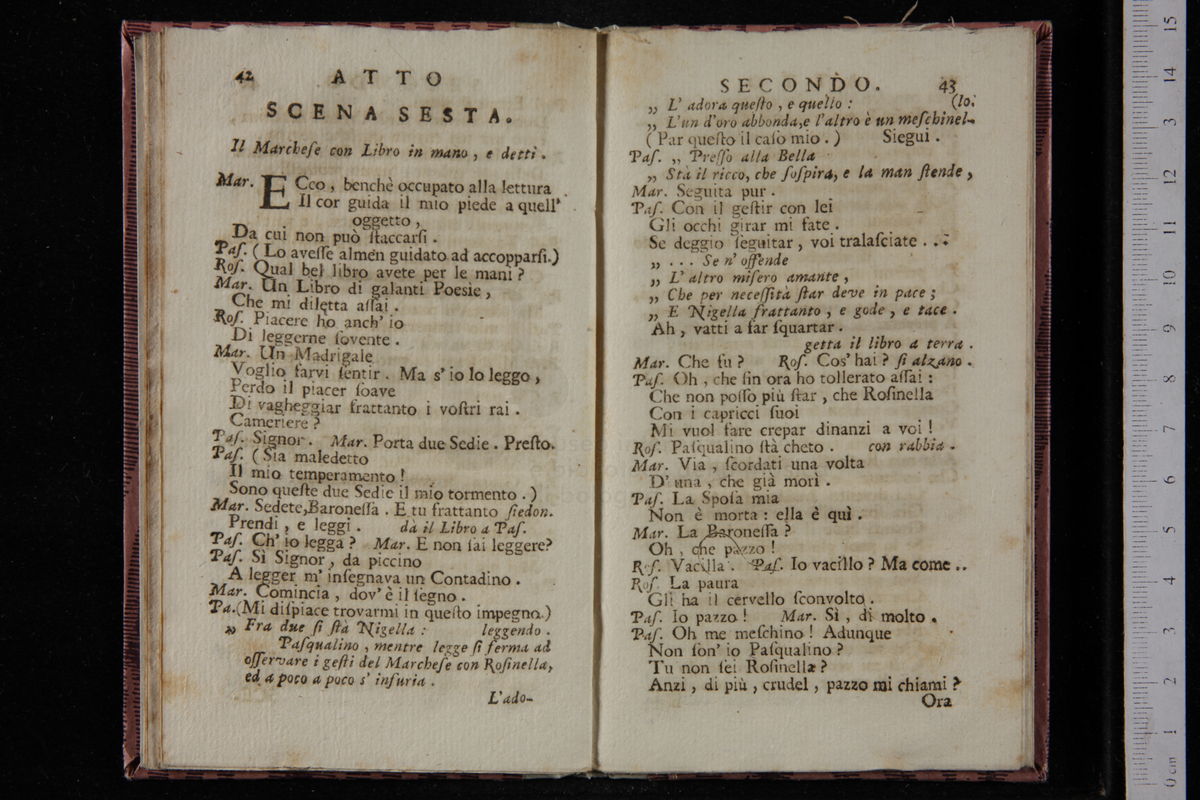 42 ATTO
SCENA SESTA.
Il Marcheſe con Libro in mano, e detti.
Mar. ECco, benchè occupato alla lettura
Il cor guida il mio piede a quell'
oggetto,
Da cui non può ſtaccarſi.
Paſ. (Lo aveſſe almen guidato ad accopparſi.)
Roſ. Qual bel libro avete per le mani?
Mar. Un Libro di galanti Poesie,
Che mi diletta aſſai.
Roſ. Piacere ho anch' io
Di leggerne ſovente.
Mar. Un Madrigale
Voglio farvi ſentir. Ma s' io lo leggo,
Perdo il piacer ſoave
Di vagheggiar frattanto i voſtri rai.
Cameriere?
Paſ. Signor. Mar. Porta due Sedie. Preſto.
Paſ. (Sia maledetto
Il mio temperamento!
Sono queſte due Sedie il mio tormento.)
Mar. Sedete, Baroneſſa. E tu frattanto ſiedon.
Prendi, e leggi. dà il Libro a Paſ.
Paſ. Ch' io legga? Mar. E non ſai leggere?
Paſ. Sì Signor, da piccino
A legger m' inſegnava un Contadino.
Mar. Comincia, dov' è il ſegno.
Pa. (Mi diſpiace trovarmi in queſto impegno.)
„ Fra due ſi ſtà Nigella: leggendo.
Paſqualino, mentre legge ſi ferma ad
oſſervare i geſti del Marcheſe con Roſinella,
ed a poco a poco s' infuria.
L'ado-
SECONDO. 43
„ L' adora queſto, e quello: (lo:
„ L'un d'oro abbonda, e l'altro è un meſchinel-
(Par queſto il caſo mio.) Siegui.
Paſ. „ Preſſo alla Bella
„ Stà il ricco, che ſoſpira, e la man ſtende,
Mar. Seguita pur.
Paſ. Con il geſtir con lei
Gli occhi girar mi fate.
Se deggio ſeguitar, voi tralaſciate...
„ ... Se n' offende
„ L' altro miſero amante,
„ Che per neceſſità ſtar deve in pace;
„ E Nigella frattanto, e gode, e tace.
Ah, vatti a far ſquartar.
getta il libro a terra.
Mar. Che fu? Roſ. Cos' hai? ſi alzano.
Paſ. Oh, che ſin ora ho tollerato aſſai:
Che non poſſo più ſtar, che Roſinella
Con i capricci ſuoi
Mi vuol fare crepar dinanzi a voi!
Roſ. Paſqualino ſtà cheto. con rabbia.
Mar. Via, ſcordati una volta
D' una, che già morì.
Paſ. La Spoſa mia
Non è morta: ella è quì.
Mar. La Baroneſſa?
Oh, che pazzo!
Roſ. Vacilla. Paſ. Io vacillo? Ma come..
Roſ. La paura
Gli ha il cervello ſconvolto.
Paſ. Io pazzo! Mar. Sì, di molto.
Paſ. Oh me meſchino! Adunque
Non ſon' io Paſqualino?
Tu non ſei Roſinella?
Anzi, di più, crudel, pazzo mi chiami?
Ora